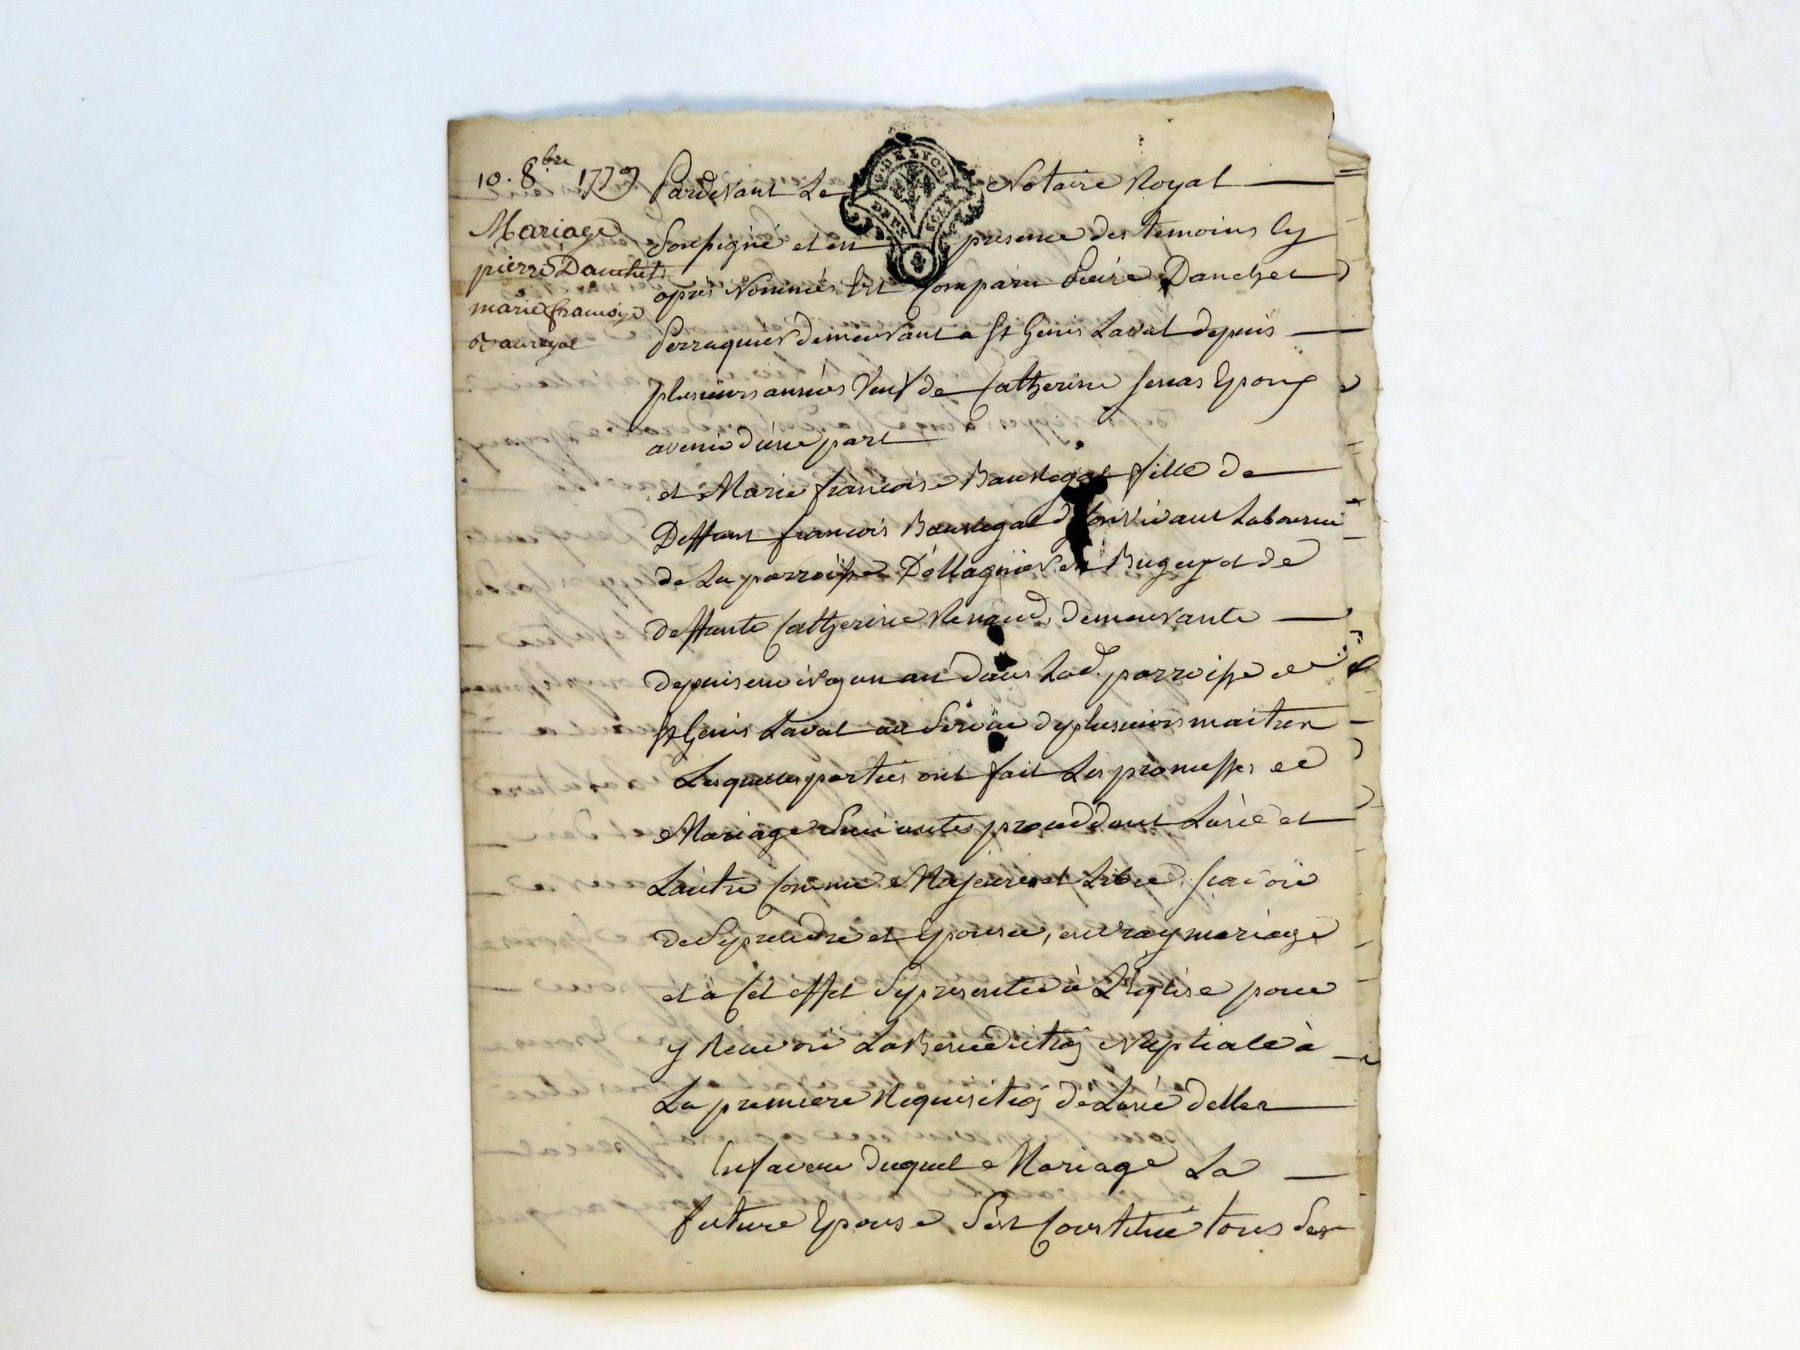 10. 8.bre 1779
Mariage
pierre Danchet
marie françoise
Pardevant Le Notaire Royal
Soussigné et en presence des temoins Cy
apres Nommés Est Comparu Pierre Danchet
Perruquier demeurant a St Genis Laval depuis
plusieurs années Veuf de Catherine Epoux
avenir d'une part
et Marie francoise fille de
Deffunt francois vivant Laboureur
de La parroisse en Bugey et de
deffunte Catherine demeurante
depuis environ un an dans Lad. parroisse de
St Genis Laval au Service de plusieurs maitres
Lesquelles parties ont fait Les promesses de
Mariage Suivantes procedant L'une et
L'autre Comme Majeures et Libre, scavoir
de Se prendre et Epouser, en vray mariage
et à Cet effet Se presenter à L'Eglise pour
y Recevoir La Benediction Nuptiale à
La premiere Requisition de L'une d'elles
En faveur duquel Mariage La
future Epouse S'est Constitué tous Ses